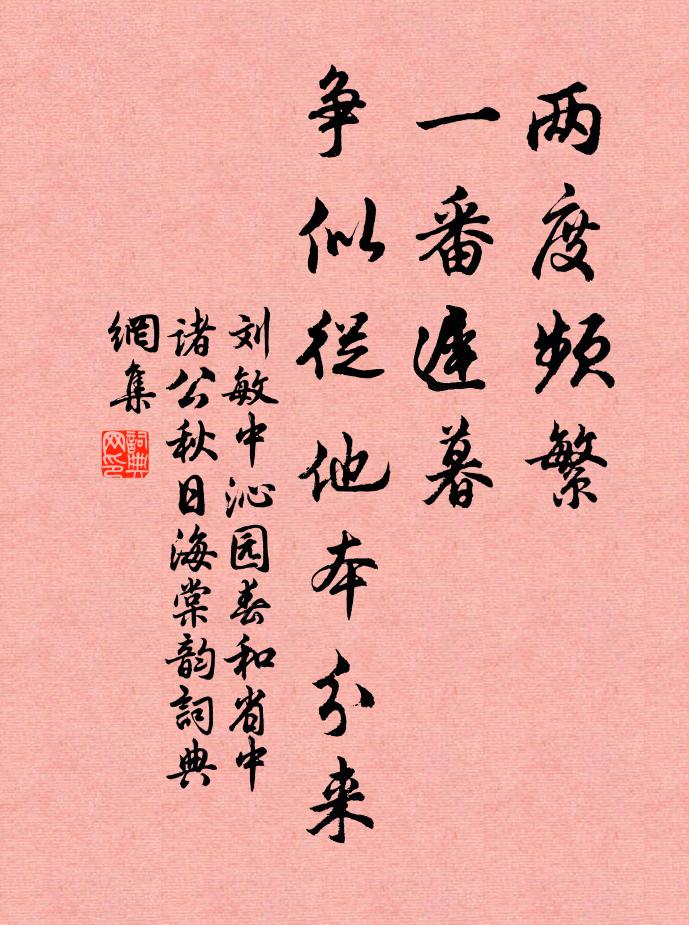 两度频繁
一番遲暮
争似従他本分来
刘敏中沁园春和省中
诸公秋日海棠韵詞典
網集
詞典网印